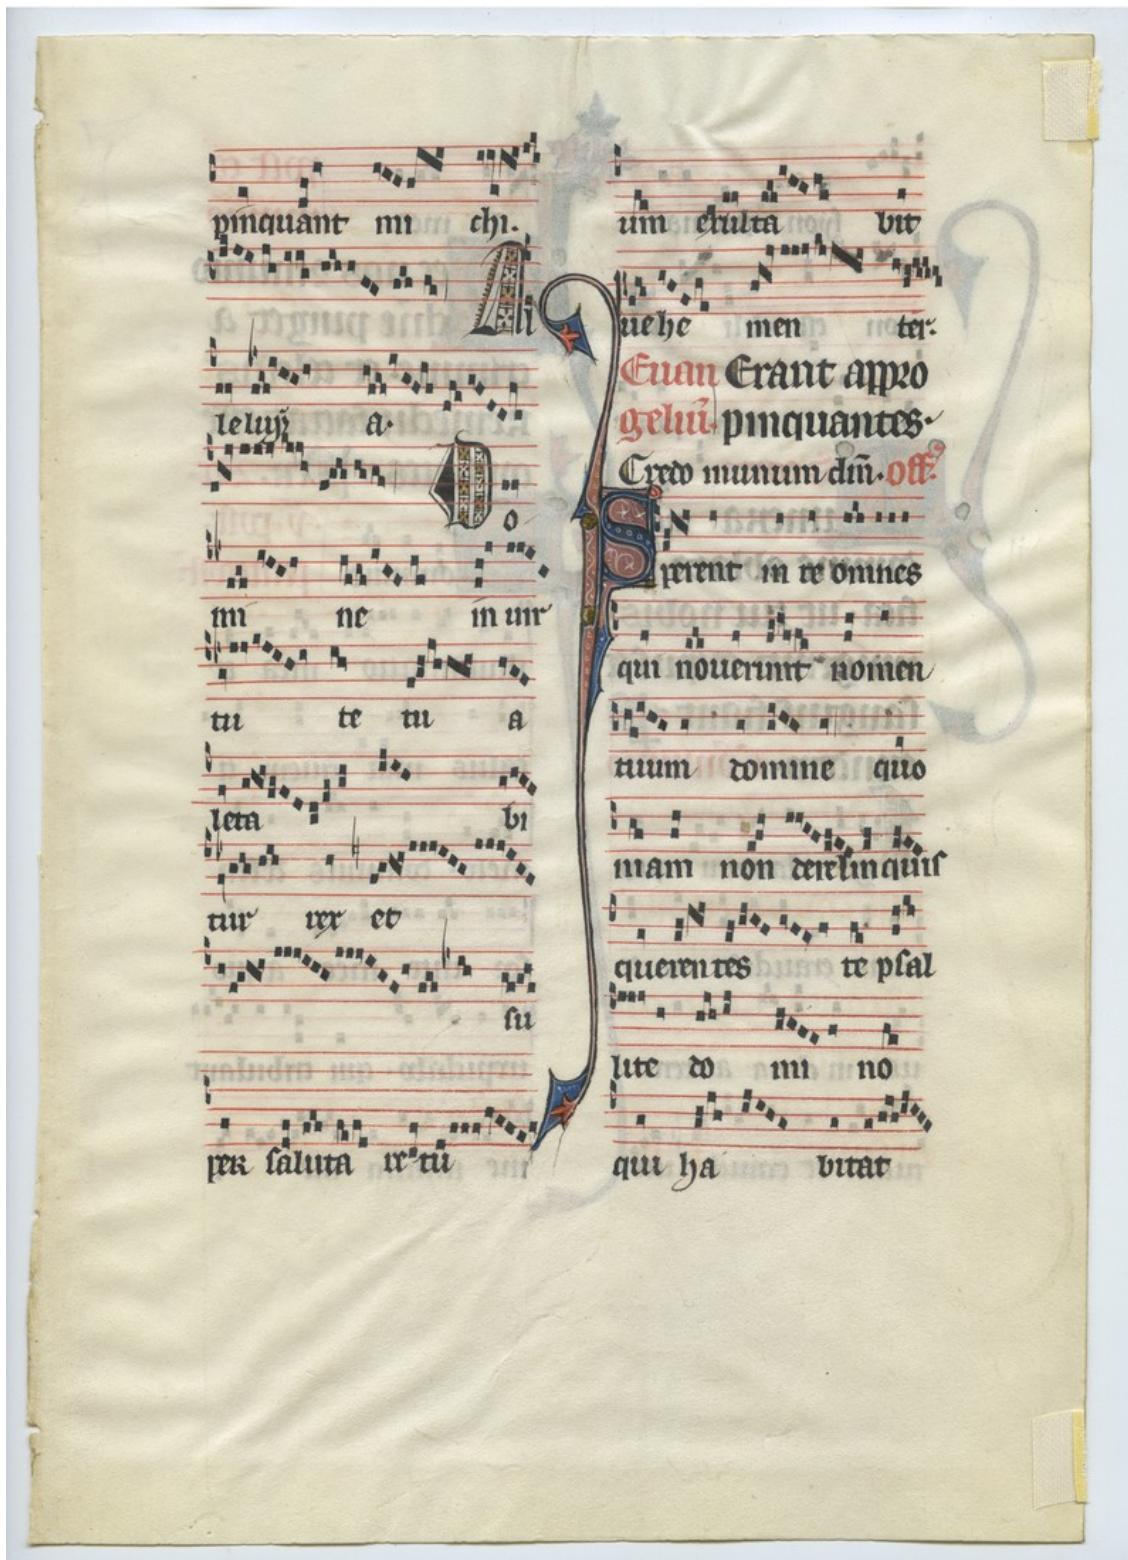 pinquant mi chi.
Alli
leluya a.
Do
mi ne in uir
tu te tu a
leta bi
tur rex et
su
per saluta re tu
um exulta bit
uehe men ter.
Euan Erant appro
geliū. pinquantes.
Credo in unum dm̄. off.
Sperent in te omnes
qui nouerunt nomen
tuum domine quo
niam non derelinquis
querentes te psal
lite do mi no
qui ha bitat